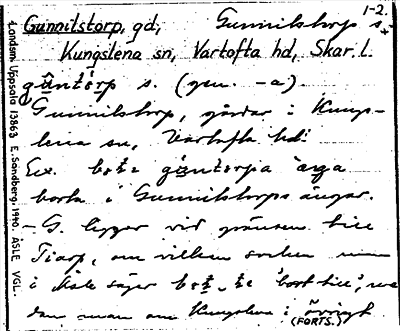 1-2.
Gunnilstorp, gd, Gunnilstorp s.
Kungslena sn, Vartofta hd, Skar. l.
s. (gen. -a).
Gunnilstorp, gårdar i Kungs-
lena sn, Vartofta hd.
Ex.
borta i Gunnilstorps ängar.
- G. ligger vid gränsen till
Tiarp, om vilken socken man
i Åsle säger 'bort till',
dan man om Kungslena i övrigt
(FORTS.)
Landsm. Uppsala 13863 E. Sandberg. 1940. ÅSLE VGL.